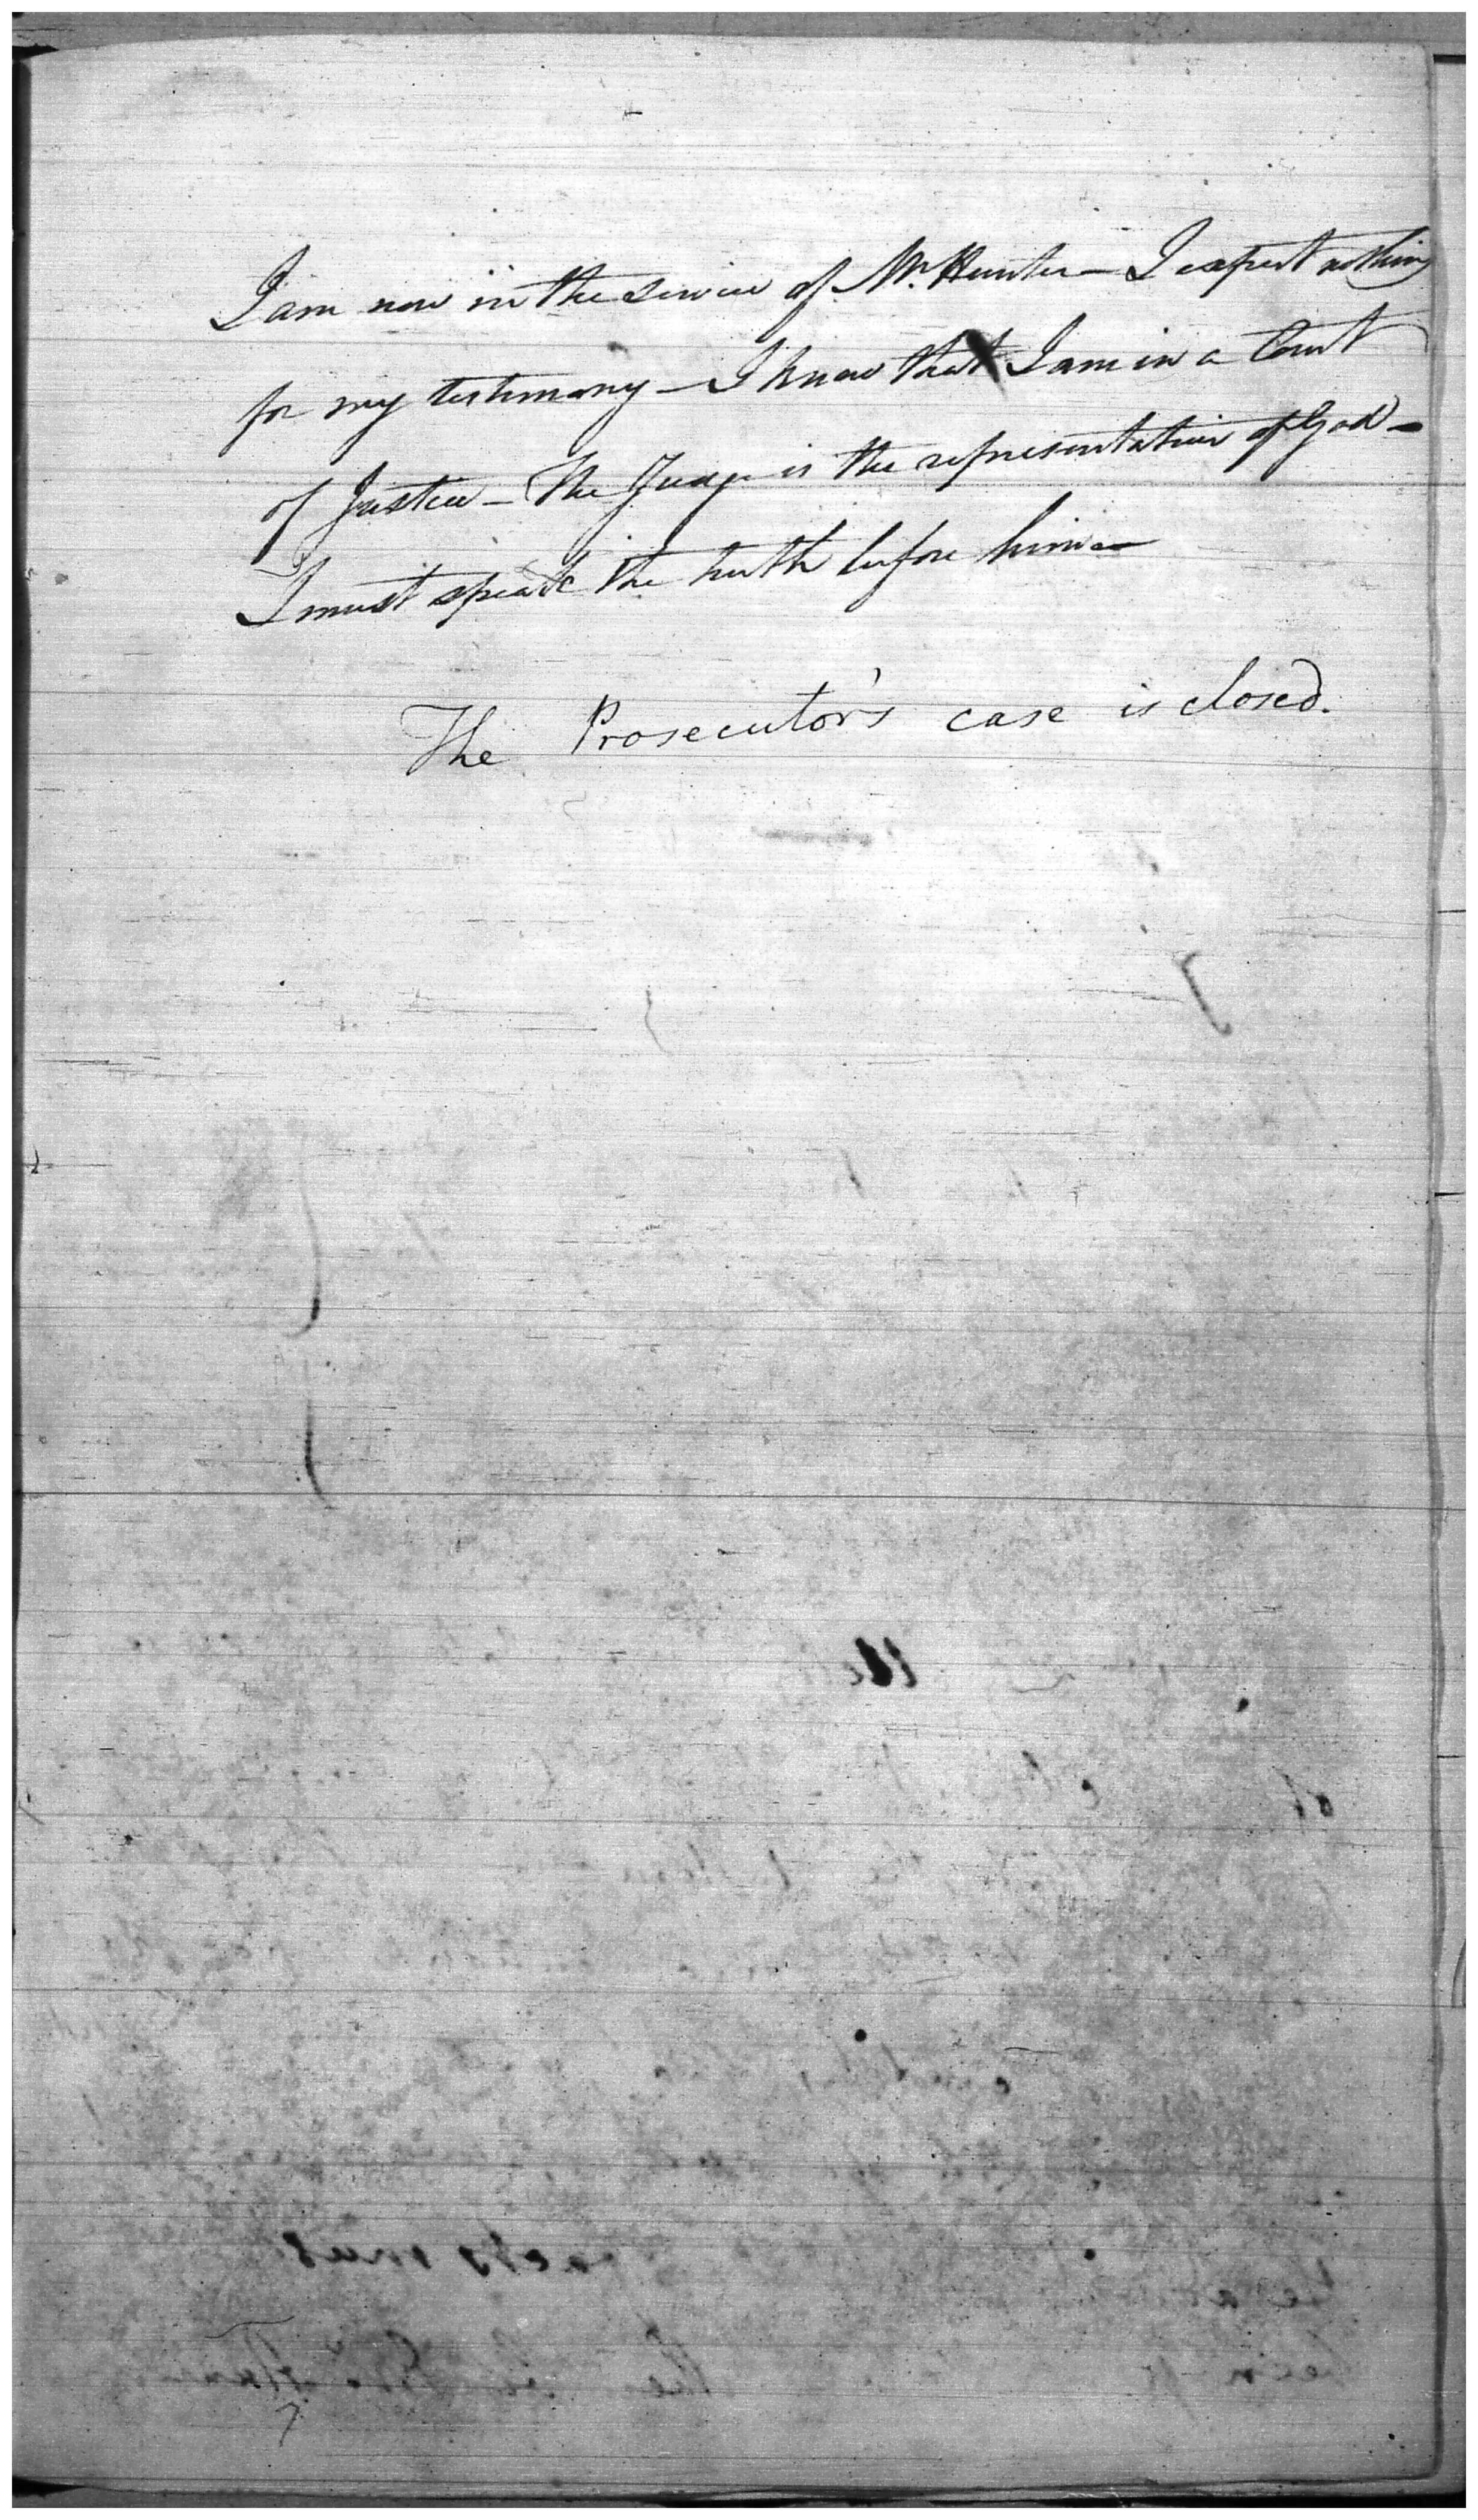 I am now in the service of Mr. Hunter — I expect nothing
for my testimony — I know that I am in a Court
of Justice — The Judge is the representation of God —
I must speak the truth before him —
The Prosecutor's case is closed.